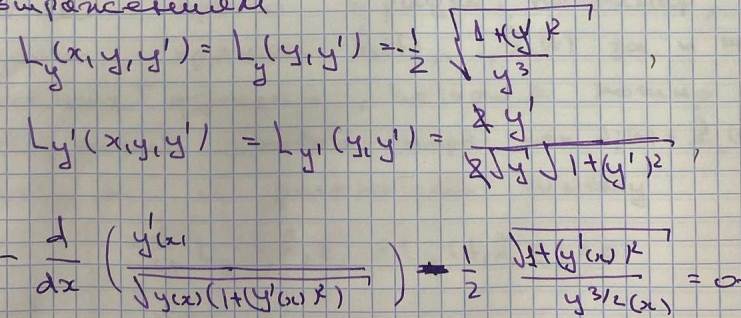 выражениям
L_y(x, y, y') = L_y(y, y') = -\frac{1}{2} \sqrt{\frac{1+(y')^2}{y^3}},
L_{y'}(x, y, y') = L_{y'}(y, y') = \frac{2 y'}{2\sqrt{y}\sqrt{1+(y')^2}},
- \frac{d}{dx} \left( \frac{y'(x)}{\sqrt{y(x)(1+(y'(x))^2)}} \right) - \frac{1}{2} \frac{\sqrt{1+(y'(x))^2}}{y^{3/2}(x)} = 0